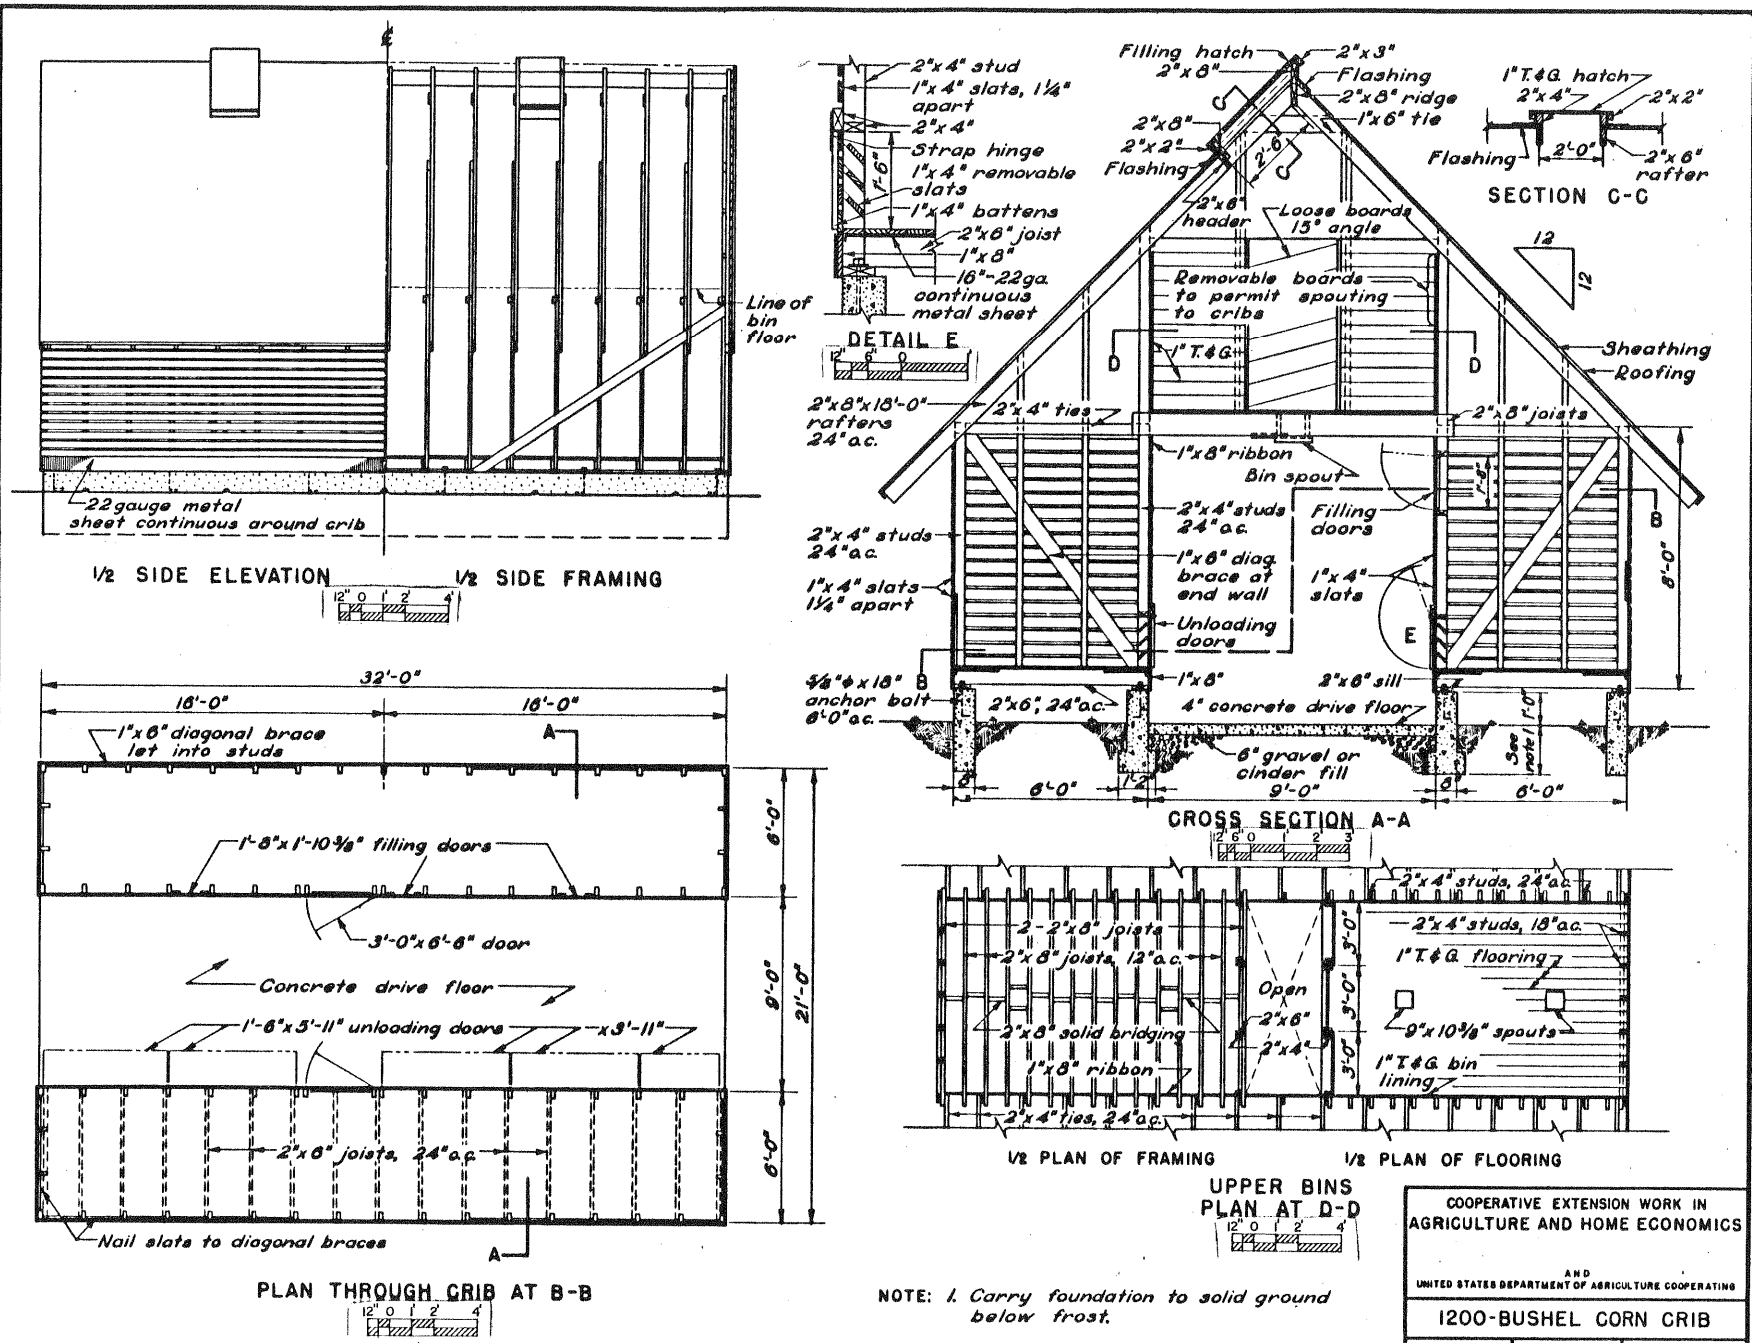 ℄
Line of
bin
floor
22 gauge metal
sheet continuous around crib
1/2 SIDE ELEVATION
1/2 SIDE FRAMING
12" 0 1' 2' 4'
2"x 4" stud
1"x 4" slats, 1¼"
apart
2"x 4"
Strap hinge
1"x 4" removable
slats
1"x 4" battens
2"x 6" joist
1"x 8"
16"-22ga.
continuous
metal sheet
1'-6"
DETAIL E
12" 6" 0 1'
Filling hatch
2"x 8"
2"x 3"
Flashing
2"x 8" ridge
1"x 6" tie
C
2"x 8"
2"x 2"
Flashing
2'-6"
C
2"x 6"
header
Loose boards
15° angle
Removable boards
to permit spouting
to cribs
D
1" T.&G.
D
1" T.&G. hatch
2"x 4"
2"x 2"
Flashing
2'-0"
2"x 6"
rafter
SECTION C-C
12
12
Sheathing
Roofing
2"x 8"x 18'-0"
rafters
24" o.c.
2"x 4" ties
2"x 8" joists
1"x 8" ribbon
Bin spout
1'-8"
2"x 4" studs
24" o.c.
2"x 4" studs
24" o.c.
Filling
doors
B
8'-0"
1"x 4" slats
1¼" apart
1"x 6" diag.
brace at
end wall
1"x 4"
slats
Unloading
doors
E
5/8"ϕ x 18"
anchor bolt
6'-0" o.c.
B
2"x 6", 24" o.c.
1"x 8"
2"x 6" sill
4" concrete drive floor
6" gravel or
cinder fill
See
note 1
1'-0"
8"
6'-0"
1'-2"
9'-0"
8"
6'-0"
CROSS SECTION A-A
12" 6" 0 1' 2' 3'
32'-0"
16'-0"
16'-0"
1"x 6" diagonal brace
let into studs
A
1'-8"x 1'-10 3/8" filling doors
3'-0"x 6'-6" door
Concrete drive floor
1'-6"x 5'-11" unloading doors
x 3'-11"
2"x 6" joists, 24" o.c.
6'-0"
9'-0"
21'-0"
6'-0"
Nail slats to diagonal braces
A
PLAN THROUGH CRIB AT B-B
12" 0 1' 2' 4'
2"x 4" studs, 24" o.c.
2-2"x 8" joists
2"x 8" joists, 12" o.c.
2"x 8" solid bridging
1"x 8" ribbon
2"x 4" ties, 24" o.c.
Open
2"x 6"
2"x 4"
3'-0"
3'-0"
3'-0"
2"x 4" studs, 18" o.c.
1" T.&G. flooring
9"x 10 3/8" spouts
1" T.&G. bin
lining
1/2 PLAN OF FRAMING
1/2 PLAN OF FLOORING
UPPER BINS
PLAN AT D-D
12" 0 1' 2' 4'
NOTE: 1. Carry foundation to solid ground
below frost.
COOPERATIVE EXTENSION WORK IN
AGRICULTURE AND HOME ECONOMICS
AND
UNITED STATES DEPARTMENT OF AGRICULTURE COOPERATING
1200-BUSHEL CORN CRIB